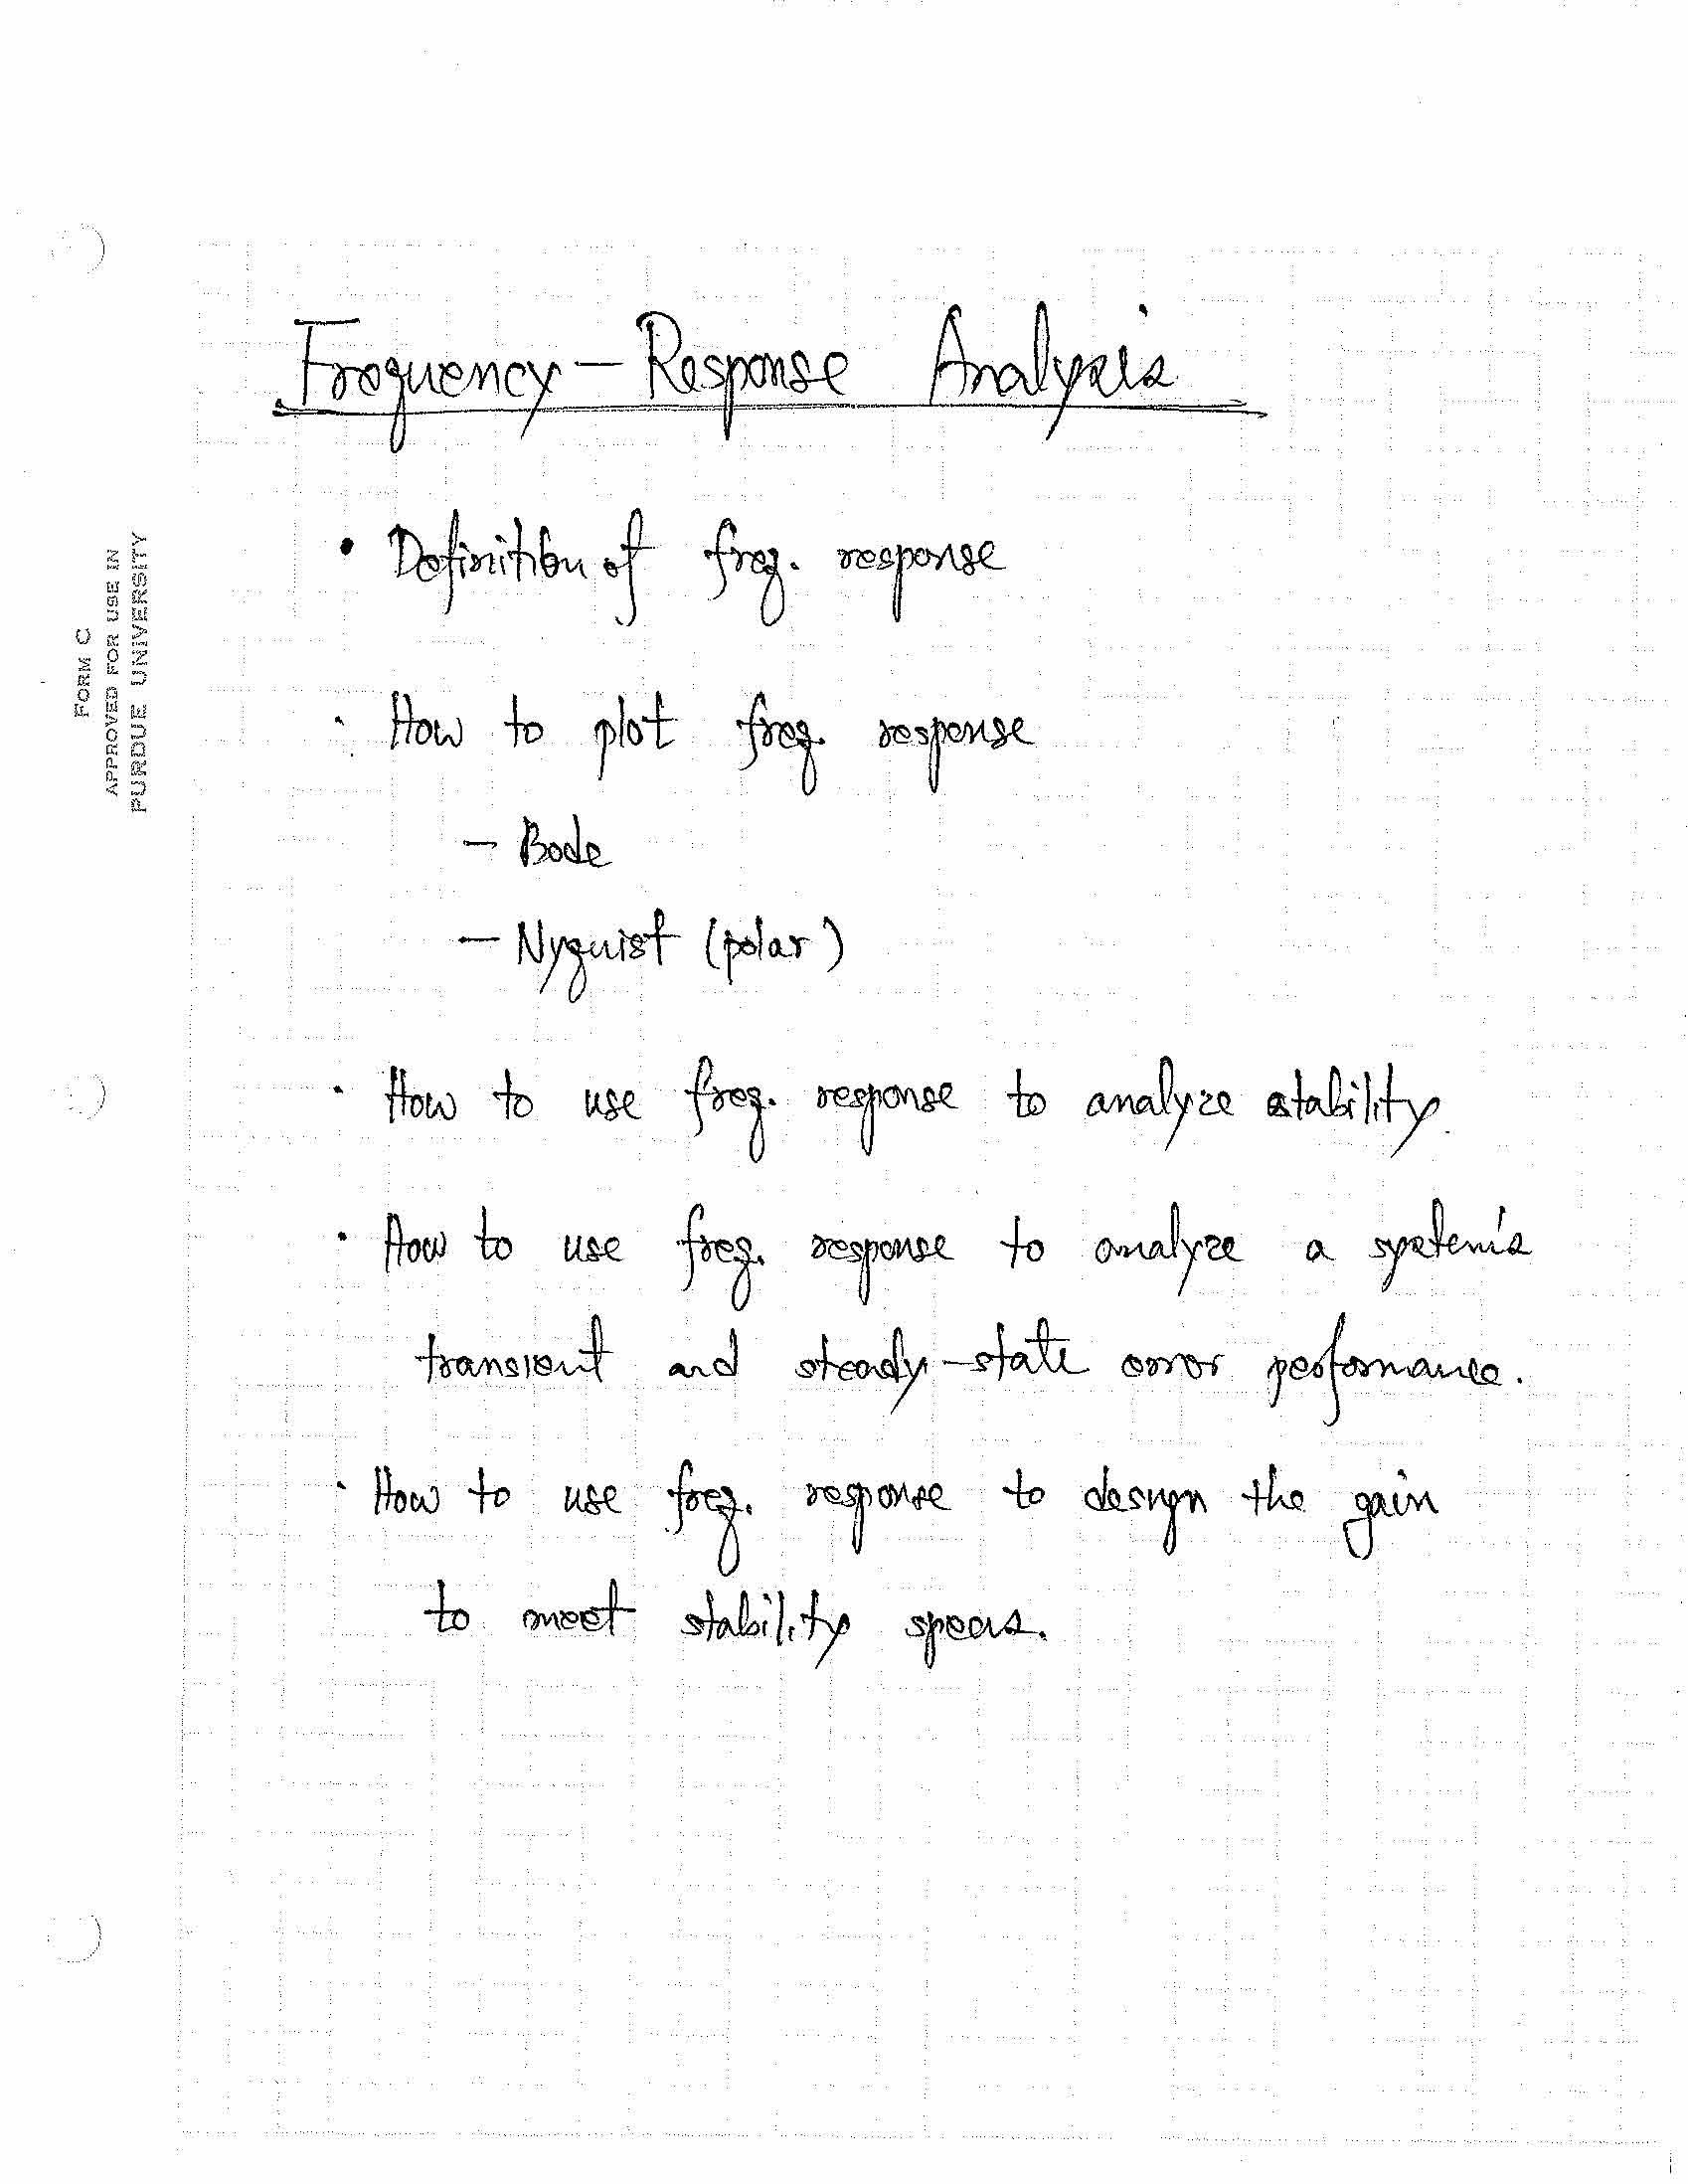 Frequency – Response Analysis
• Definition of freq. response
• How to plot freq. response
– Bode
– Nyquist (polar)
• How to use freq. response to analyze stability.
• How to use freq. response to analyze a system's
transient and steady-state error performance.
• How to use freq. response to design the gain
to meet stability specs.
FORM C
APPROVED FOR USE IN
PURDUE UNIVERSITY